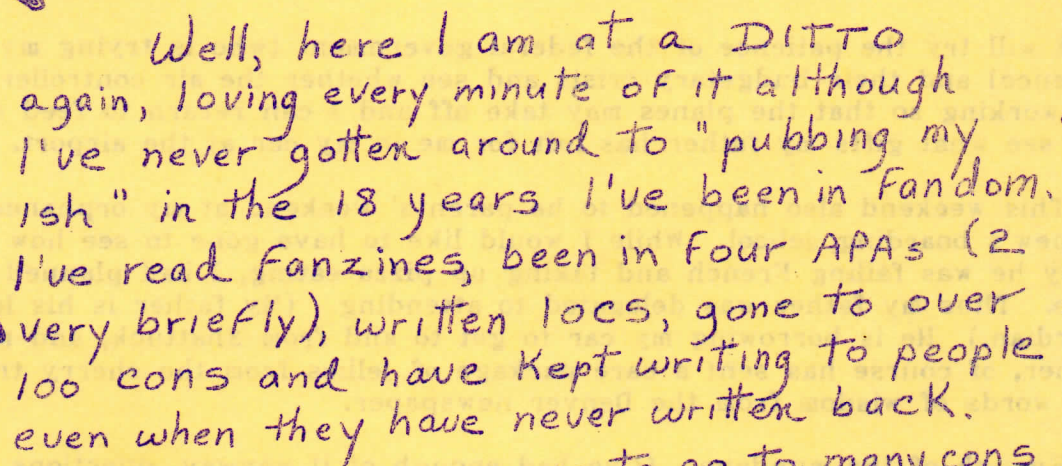 Well, here I am at a DITTO
again, loving every minute of it although
I've never gotten around to "pubbing my
ish" in the 18 years I've been in fandom.
I've read fanzines, been in four APAs (2
very briefly), written locs, gone to over
100 cons and have kept writing to people
even when they have never written back.
to go to many cons